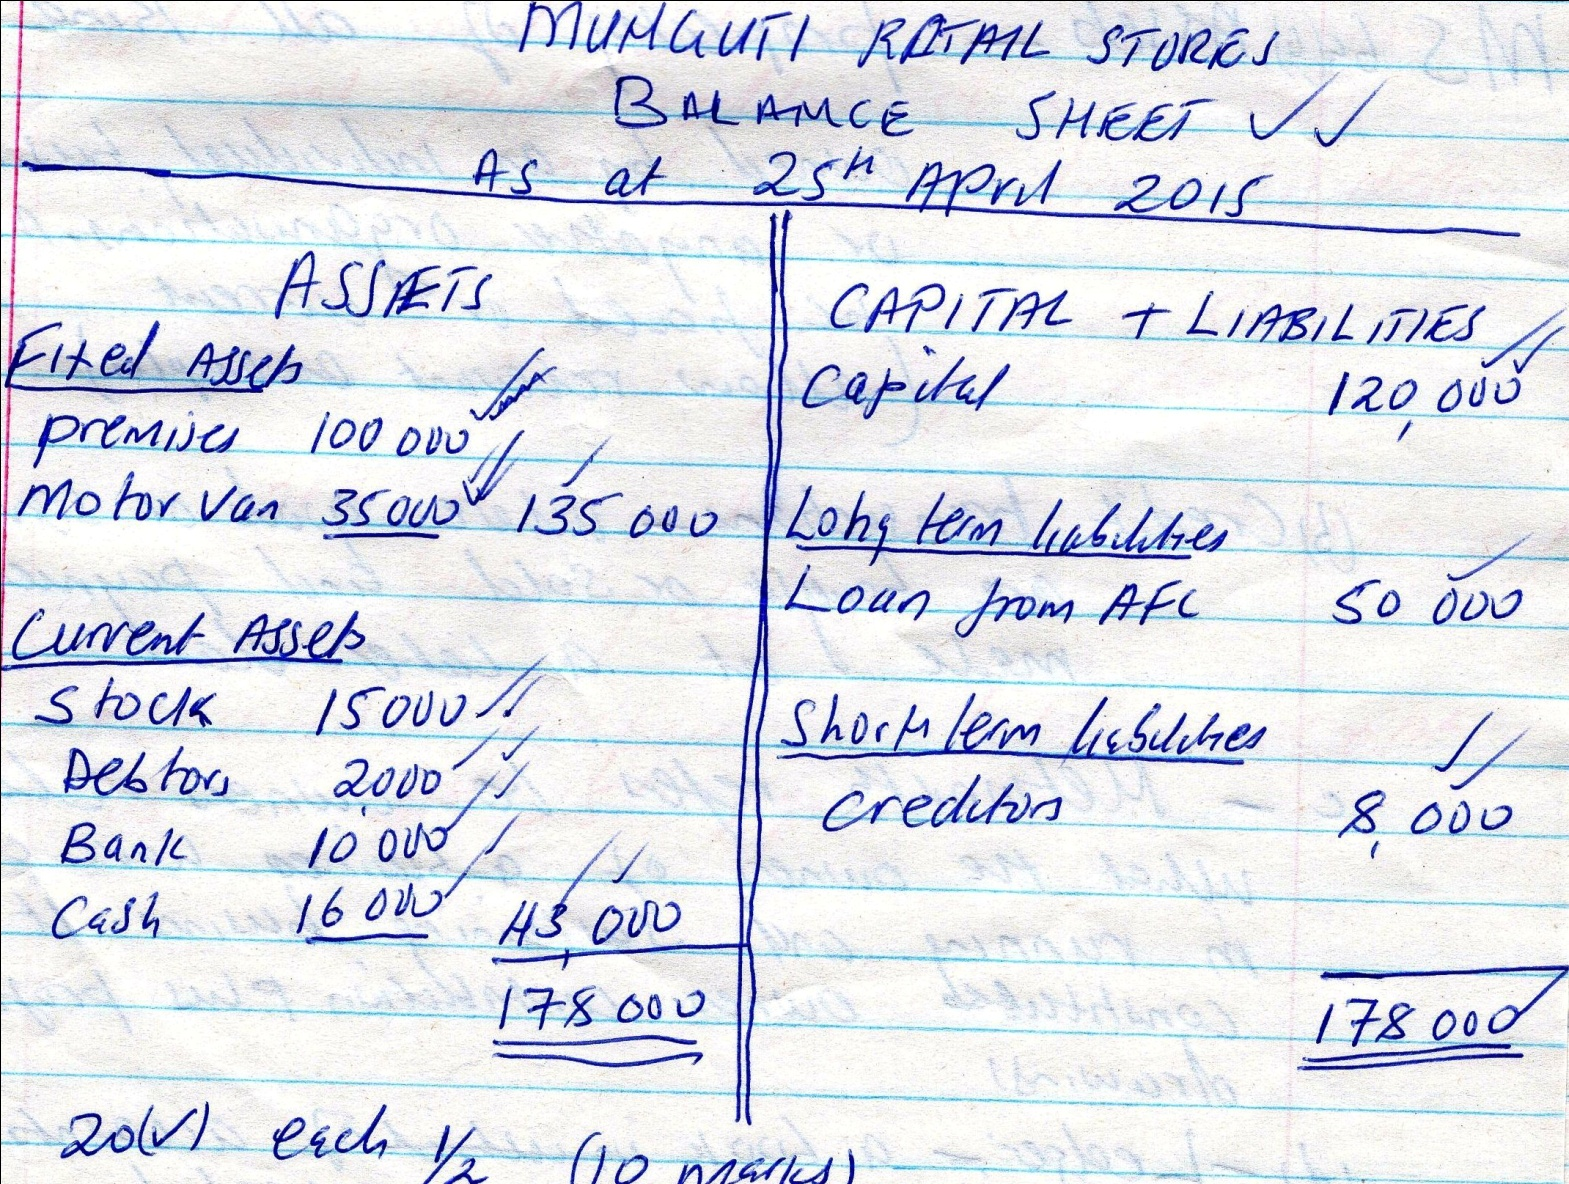 MUHGUTI RETAIL STORES
BALANCE SHEET
AS at 25TH April 2015
ASSETS
Fixed Assets
premises 100 000
Motor Van 35000 135 000
Current Assets
Stock 15000
Debtors 2,000
Bank 10 000
Cash 16 000 43,000
178 000
CAPITAL + LIABILITIES
Capital 120,000
Long term liabilities
Loan from AFC 50 000
Short term liabilities
Creditors 8,000
178 000
20(✓) each 1/2 (10 marks)